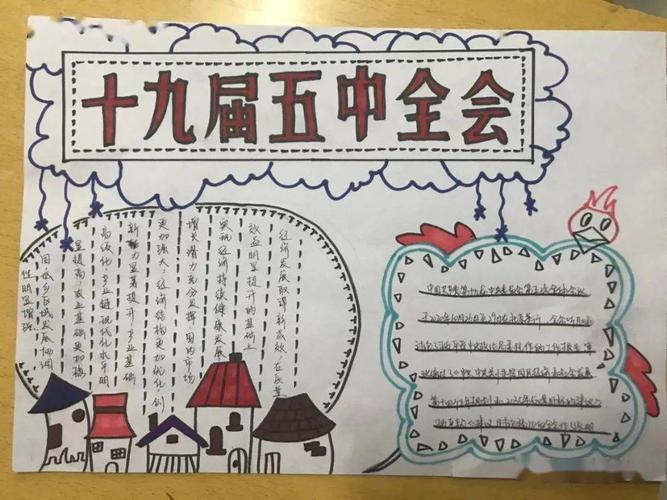 十九届五中全会
经济发展取得新成效，在质量
效益明显提升的基础上
实现经济持续健康发展
增长潜力充分发挥，国内市场
更加强大，经济结构更加优化，创
新 力显著提升，产业基础
高级化、产业链现代化水平明
显提高，农业基础更加稳
固，城乡区域发展协调
性明显增强。
中国共产党第十九届中央委员会第五次全体会议
于2020年10月26日至29日在北京举行。全会听取和
讨论了习近平受中央政治局委托作的工作报告，审
议通过了《中共中央关于制定国民经济和社会发展
第十四个五年规划和二〇三五年远景目标的建议》
习近平就《建议 向全会作了说明